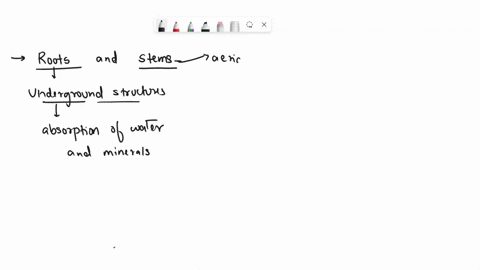 → Roots and stems → aeric
↓
Underground structures
↓
absorption of water
and minerals